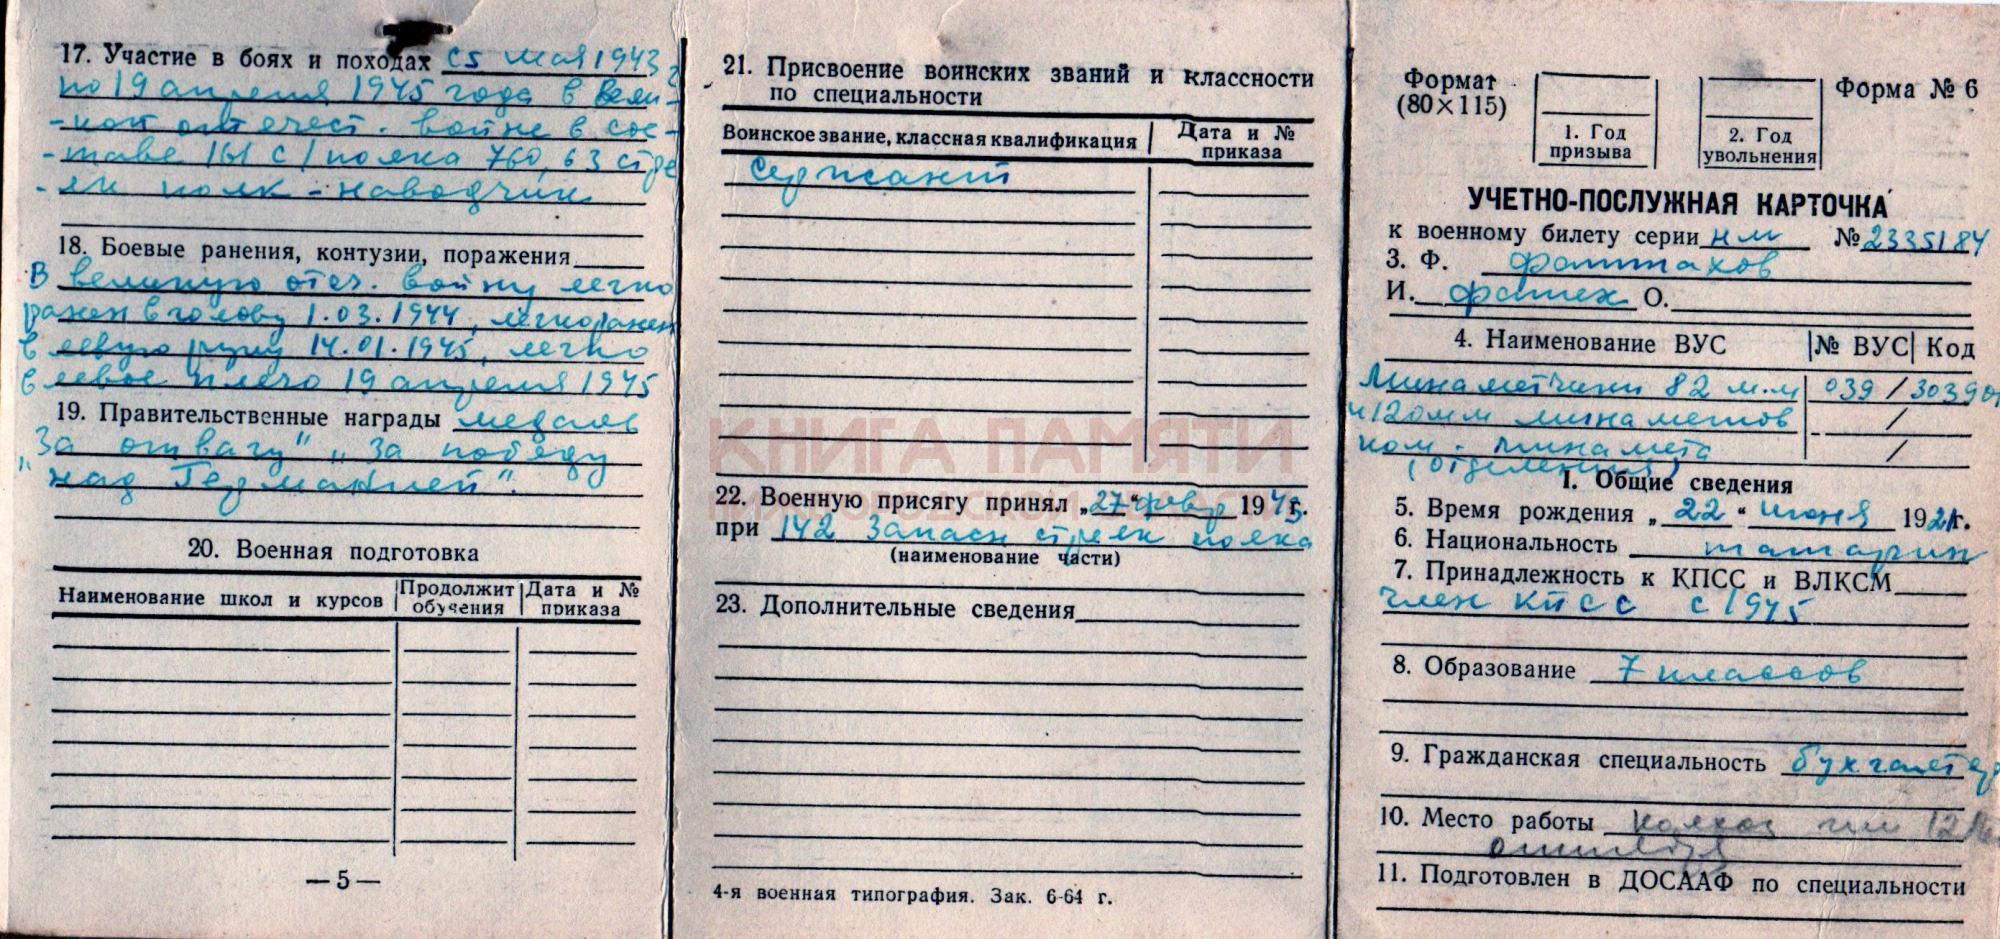 17. Участие в боях и походах с 5 мая 1943 г
по 19 апреля 1945 года в Вели-
-кой отечест. войне в сос-
-таве 161 с/полка 760, 63 стре
-лк полк - наводчик
18. Боевые ранения, контузии, поражения
В великую отеч. войну легко
ранен в голову 1.03.1944, легкоранен
в левую руку 14.01.1945, легко
в левое плечо 19 апреля 1945
19. Правительственные награды медаль
"За отвагу" "За победу
"над Германией".
20. Военная подготовка
Наименование школ и курсов | Продолжит обучения | Дата и № приказа
— 5 —
21. Присвоение воинских званий и классности
по специальности
Воинское звание, классная квалификация | Дата и № приказа
Сержант
КНИГА ПАМЯТИ
22. Военную присягу принял „27" февр 1943 г.
при 142 Запасн стрелк полка
(наименование части)
23. Дополнительные сведения
4-я военная типография. Зак. 6-64 г.
Формат
(80×115)
1. Год
призыва
2. Год
увольнения
Форма № 6
УЧЕТНО-ПОСЛУЖНАЯ КАРТОЧКА
к военному билету серии нм № 2335184
3. Ф. Фаттахов
И. Фатех О.
4. Наименование ВУС | № ВУС | Код
Минаметчики 82 м.м 039 /
и 120мм минаметов /
ком. минамета /
(отделения)
I. Общие сведения
5. Время рождения „22" июня 1921г.
6. Национальность татарин
7. Принадлежность к КПСС и ВЛКСМ
член КПСС с 1945
8. Образование 7 классов
9. Гражданская специальность бухгалтер
10. Место работы колхоз им 12
11. Подготовлен в ДОСААФ по специальности